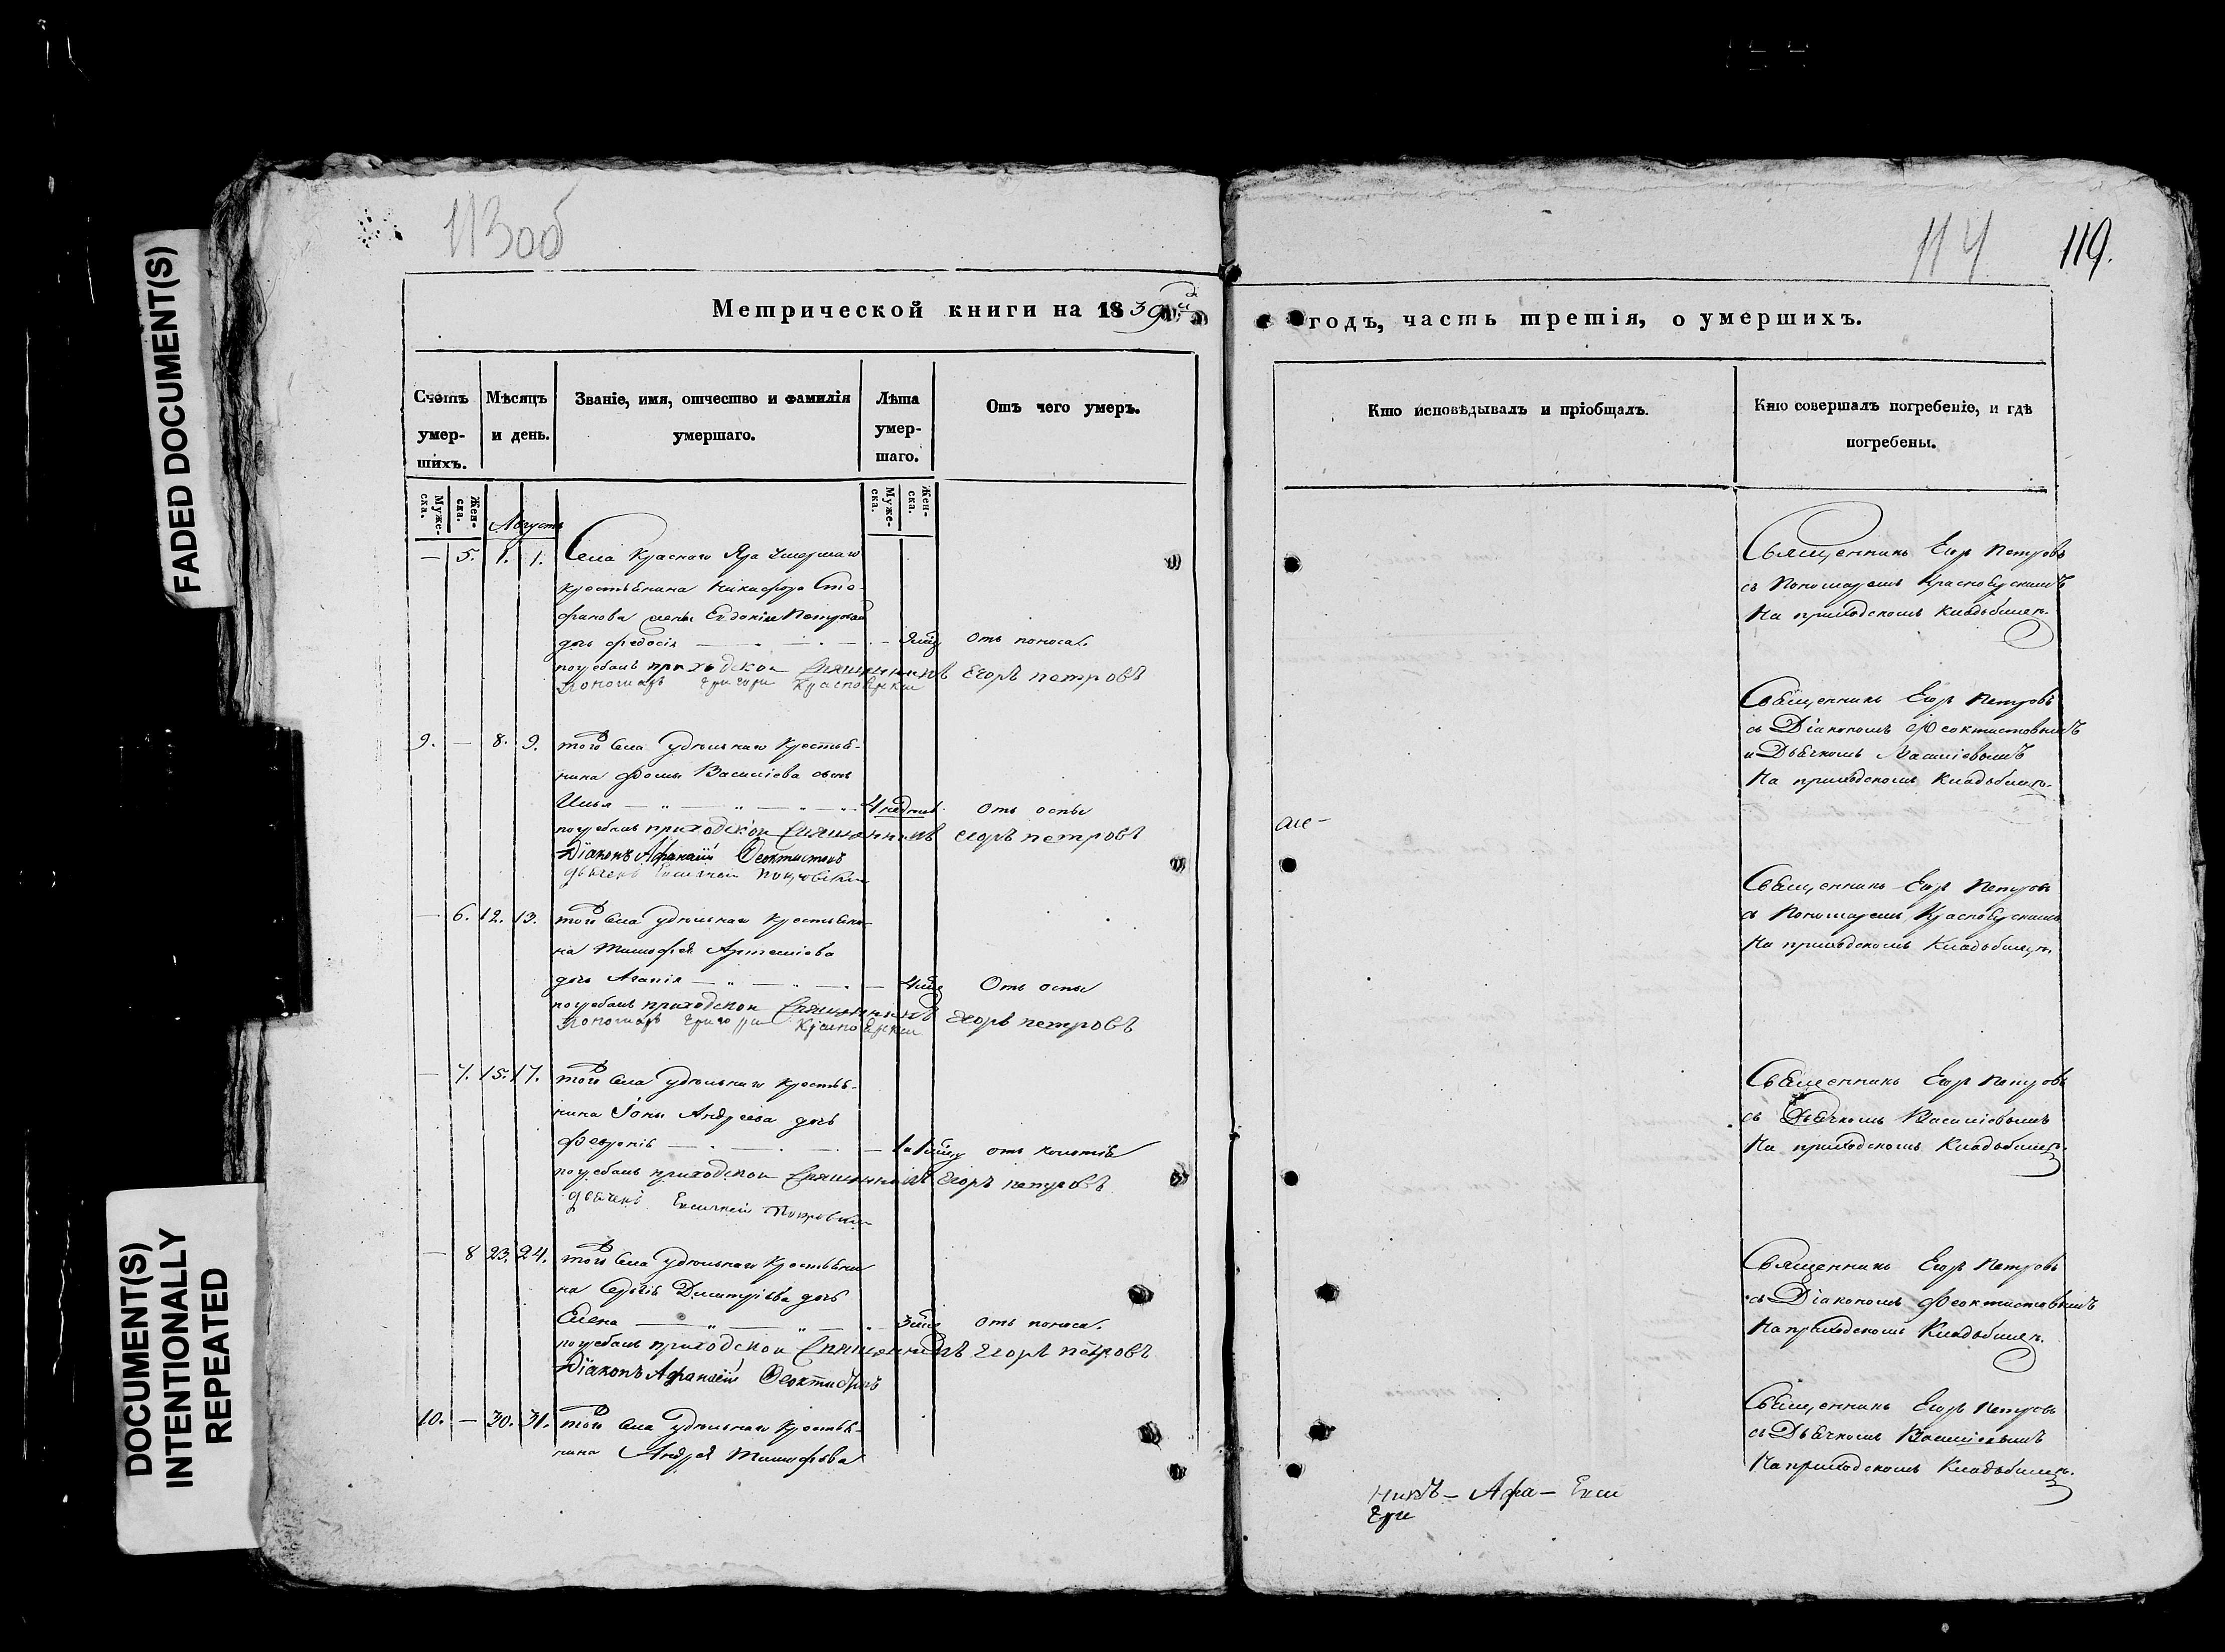 113об
114
119.
Метрической книги на 1839й
годъ, часть третія, о умершихъ.
Счетъ умер-шихъ.
Мѣсяцъ и день.
Званіе, имя, отчество и фамилія умершаго.
Лѣта умер-шаго.
Отъ чего умеръ.
Кто исповѣдывалъ и пріобщалъ.
Кто совершалъ погребеніе, и гдѣ погребены.
Муже-ска.
Жен-ска.
Муже-ска.
Жен-ска.
Августъ
— 5. 1. 1. Села Краснаго Яра умершаго
крестьянина Никифора Сте-
фанова жены Евдокіи Петровой
дочь Федосія Отъ поноса.
погребалъ приходской Священникъ Егоръ Петровъ
Пономарь Григори Красноярски
Священникъ Егор Петровъ
съ Пономаремъ Красноярскимъ
На приходскомъ кладбищѣ.
9. — 8. 9. того села удѣльнаго крестья-
нина Фомы Васильева сынъ
Илья 4 недѣль Отъ оспы
погребалъ приходской Священникъ Егоръ Петровъ
Діаконъ Афанасій Феоктистовъ
дьячекъ Покровски
Священникъ Егор Петровъ
съ Діакономъ Феоктистовымъ
и Дьячкомъ Василіевымъ
На приходскомъ кладбищѣ.
— 6. 12. 13. того села удѣльнаго крестьяни-
на Тимофея Артеміева
дочь Агапія Отъ оспы
погребалъ приходской Священникъ Егоръ Петровъ
Пономарь Григорри Красноярски
Священникъ Егор Петровъ
съ Пономаремъ Красноярскимъ
На приходскомъ кладбищѣ.
— 7. 15. 17. того села удѣльнаго крестья-
нина Іоны Андреева дочь
Февронія отъ
погребалъ приходской Священникъ Егоръ Петровъ
дьячекъ Покровски
Священникъ Егор Петровъ
съ Дьячкомъ Василіевымъ
На приходскомъ кладбищѣ.
— 8 23. 24. того села удѣльнаго крестьяни
на Сергія Димитріева дочь
Елена отъ поноса.
погребалъ приходской Священникъ Егоръ Петровъ
Діаконъ Афанасій Феоктистовъ
Священникъ Егор Петровъ
съ Діакономъ Феоктистовымъ
На приходскомъ кладбищѣ.
10. — 30. 31. того села удѣльнаго крестья-
нина Андрея Тимофѣева
Священникъ Егор Петровъ
съ Дьячкомъ Василіевымъ
На приходскомъ кладбищѣ.
никъ — Афа —
Гри
FADED DOCUMENT(S)
DOCUMENT(S)
INTENTIONALLY
REPEATED